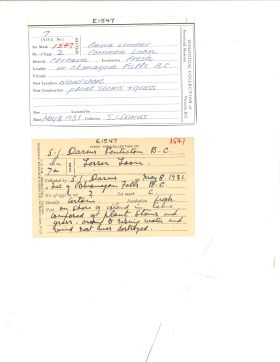 E1547
7
(A.O.U. No.)
Gavia immer
Set Mark 1547 Common Loon
No. of Eggs 2
Identity certain Incubation fresh
Locality Okanagan Falls B C.
Vicinity
Nest Location island shore
Nest Construction plant stems & grass
Date May 8 1931 Collector S.J. Darcus
E1547
1547
S.J. Darcus Penticton B.C.
7a Lesser Loon.
Collected by S.J. Darcus May 8. 1931.
Okanagan Falls B.C.
2 Set mark C
Identity certain fresh
Nest on shore of island in lake
composed of plant stems and
grass. owing to rising water and
wind nest near destroyed.